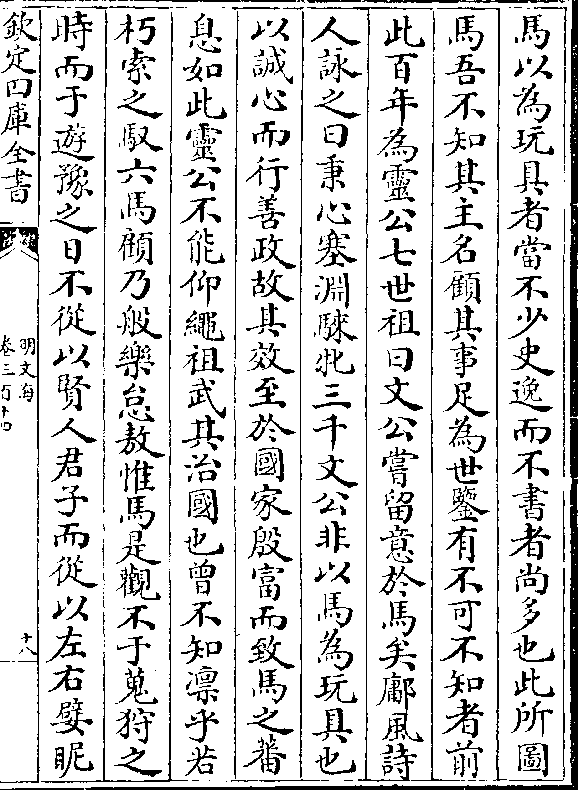 馬以為玩具者當不少史逸而不書者尚多也此所圖
馬吾不知其主名顧其事足為世鑒有不可不知者前
此百年為靈公七世祖曰文公嘗留意於馬矣鄘風詩
人詠之曰秉心塞淵騋牝三千文公非以馬為玩具也
以誠心而行善政故其效至於國家殷富而致馬之蕃
息如此靈公不能仰繩祖武其治國也曾不知凛乎若
朽索之馭六馬顧乃般樂怠敖惟馬是觀不于蒐狩之
時而于遊豫之日不從以賢人君子而從以左右嬖昵
欽定四庫全書
明文海
卷三百十四
十八